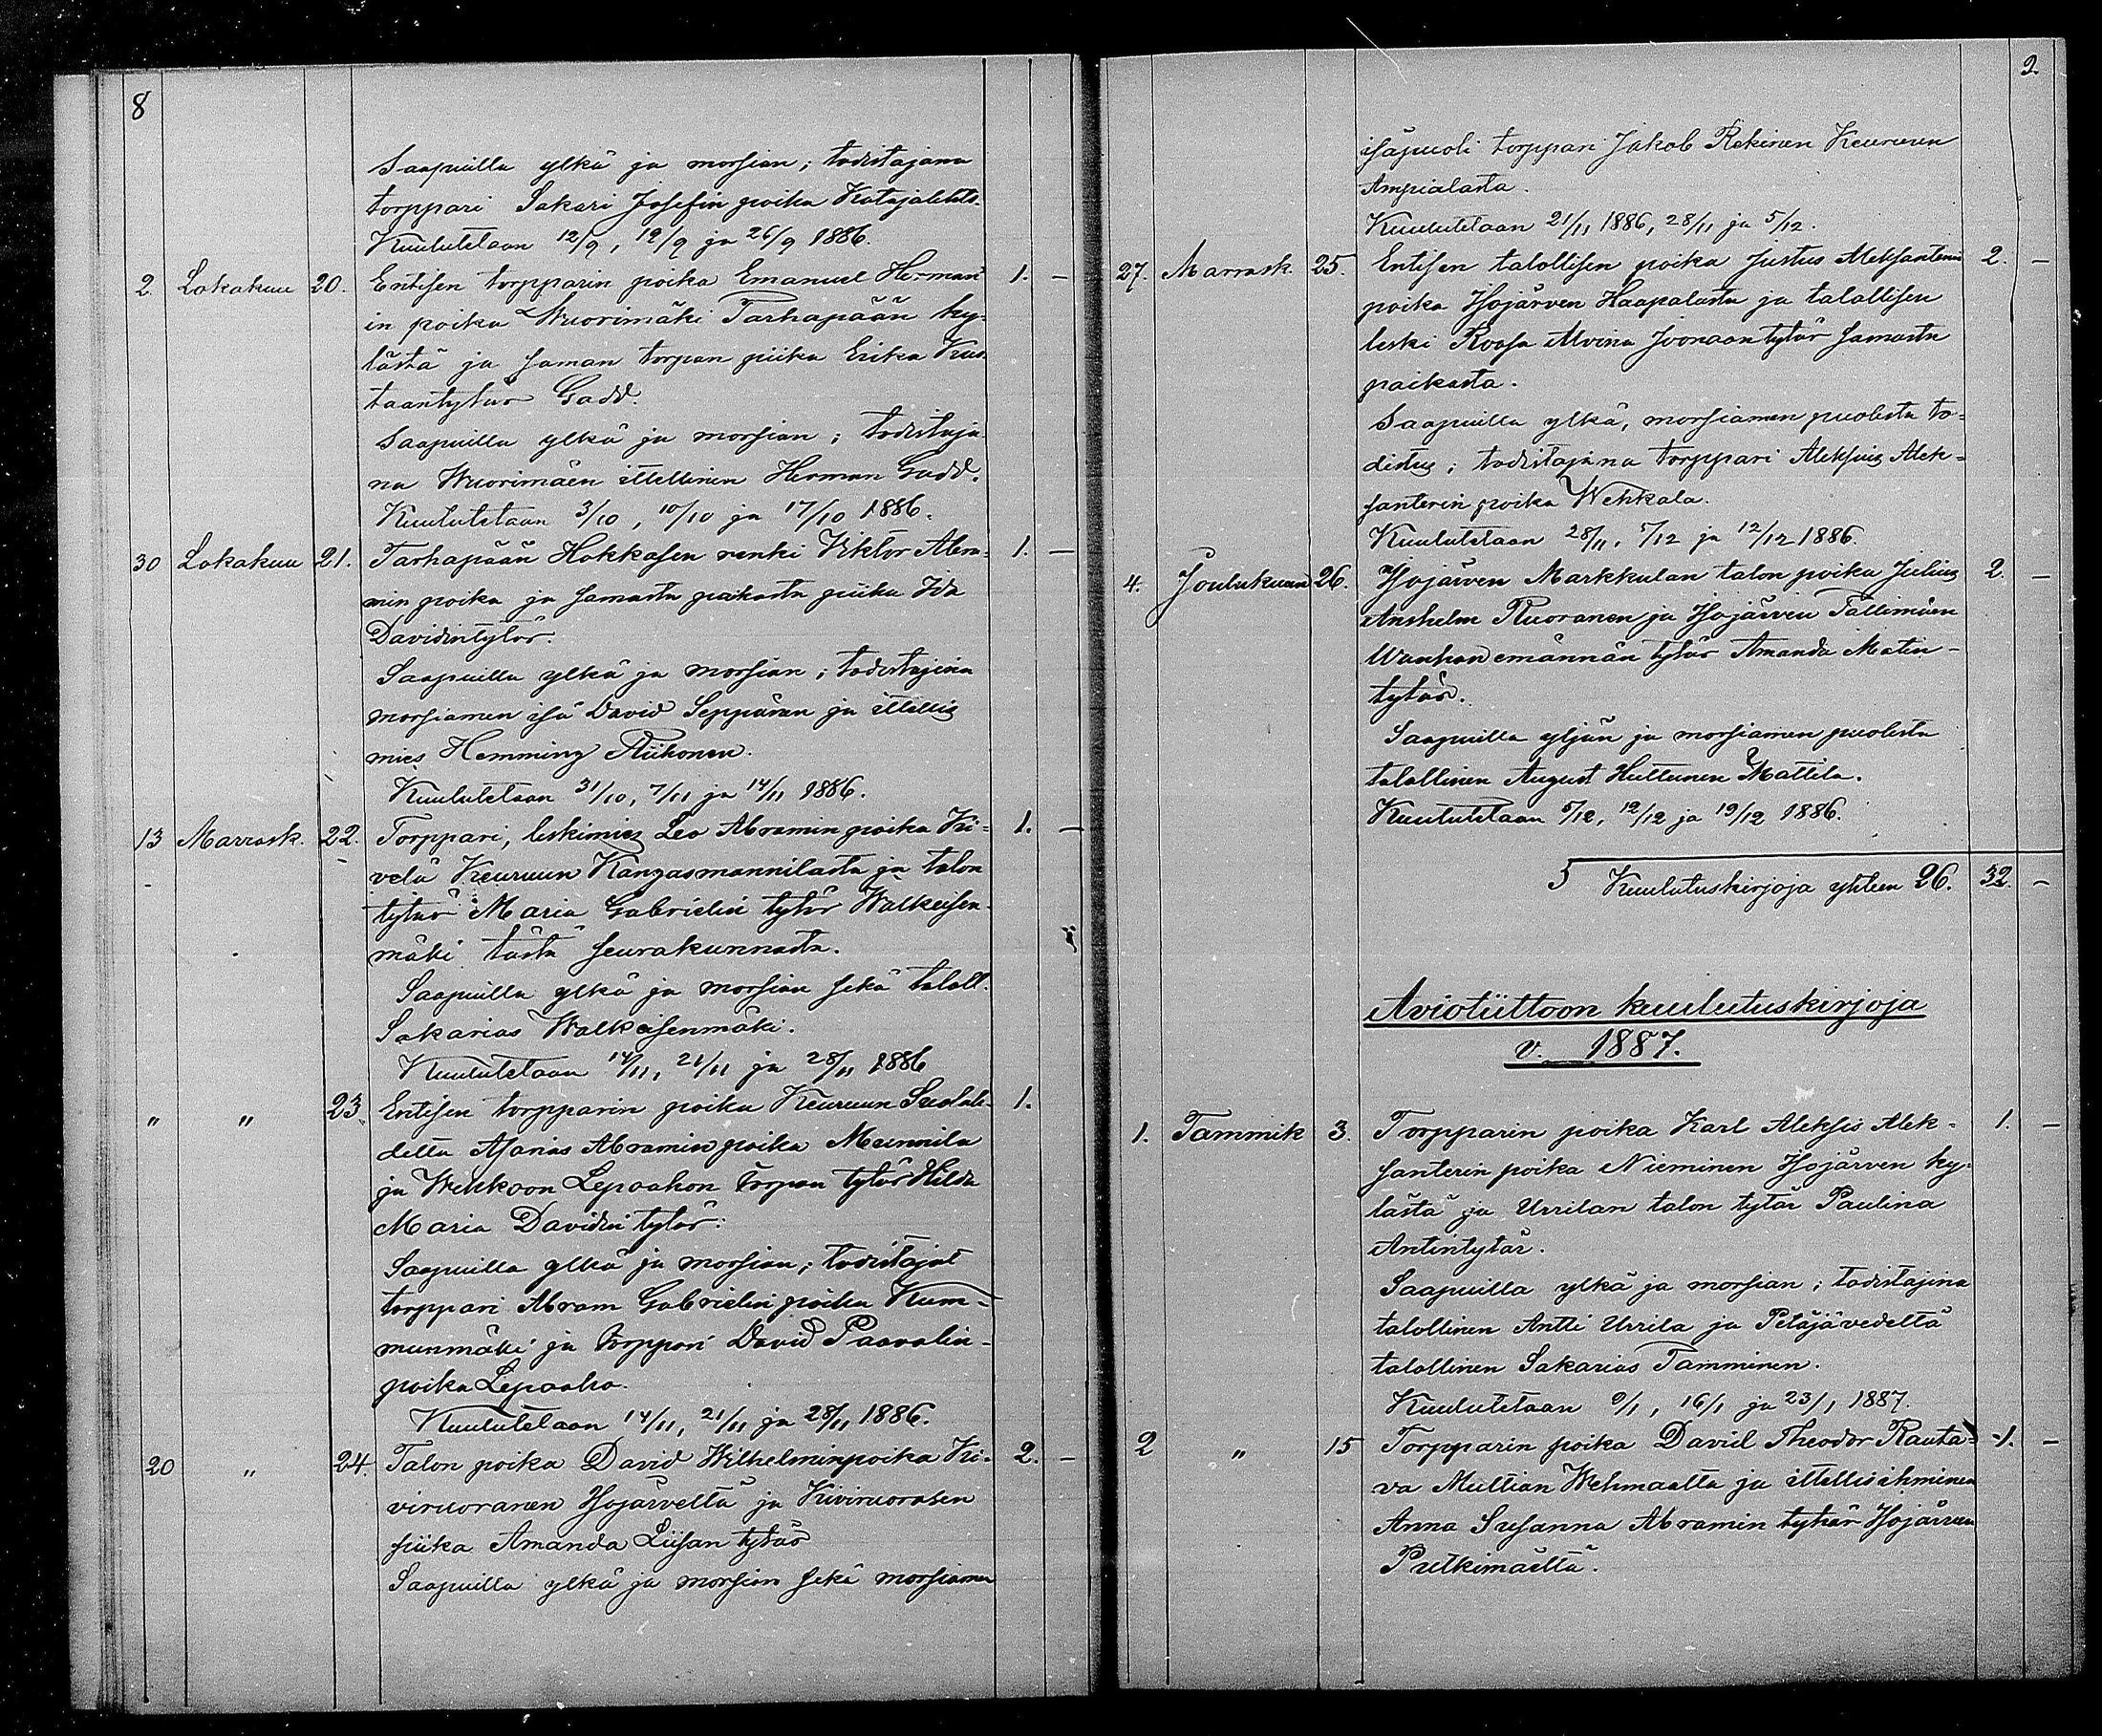 8
Saapuilla ylkä ja morsian; todistajana
torppari Sakari Josefin poika Katajalehto.
Kuulutetaan 12/9, 19/9 ja 26/9 1886.
2. Lokakuu 20. Entisen torpparin poika Emanuel Herman 1. —
in poika Wuorimäki Tarhapään ky-
lästä ja saman torpan piika Erika Kus-
taantytär Gadd.
Saapuilla ylkä ja morsian; todistaja
na Wuorimäen itellinen Herman Gadd.
Kuulutetaan 3/10, 10/10 ja 17/10 1886.
30 Lokakuu 21. Tarhapään Hokkasen renki Viktor Abra- 1. —
min poika ja samasta paikasta piika Ida
Davidintytär.
Saapuilla ylkä ja morsian; todistajina
morsiamen isä David Seppänen ja itellis
mies Hemming Tiikonen.
Kuulutetaan 31/10, 7/11 ja 14/11 1886.
13 Marrask. 22. Torppari, leskimies Leo Abramin poika Ki- 1. —
velä Keuruun Kangasmannilasta ja talon
tytär Maria Gabrielin tytär Walkeisen-
mäki tästä seurakunnasta.
Saapuilla ylkä ja morsian sekä taloll.
Sakarias Walkeisenmäki.
Kuulutetaan 14/11, 21/11 ja 28/11 1886
" " 23. Entisen torpparin poika Keuruun Suolah-
1.
delta Asarias Abramin poika Mannila
ja Wehkoon Lepaahon torpan tytär Hilda
Maria Davidin tytär:
Saapuilla ylkä ja morsian; todistajat
torppari Abram Gabrielin poika Kum-
munmäki ja torppari David Paavalin-
poika Lepaaho.
Kuulutetaan 14/11, 21/11 ja 28/11 1886.
20 " 24. Talon poika David Wilhelminpoika Ki- 2. —
viruoranen Isojärveltä ja Kiviruorasen
piika Amanda Liisan tytär
Saapuilla ylkä ja morsian sekä morsiamen
9.
isäpuoli torppari Jakob Rekinen Keuruun
Ampialasta.
Kuulutetaan 21/11 1886, 28/11 ja 5/12.
27. Marrask. 25. Entisen talollisen poika Justus Aleksanterin 2. —
poika Isojärven Haapalasta ja talallisen
leski Roosa Alvina Joonaantytär samasta
paikasta.
Saapuilla ylkä, morsiamen puolesta to-
distus; todistajana torppari Aleksius Alek-
santerin poika Wehkala.
Kuulutetaan 28/11, 5/12 ja 12/12 1886.
4. Joulukuun 26. Isojärven Markkulan talon poika Julius 2. —
Anshelm Ruoranen ja Isojärven Tallimäen
Wanhan emännän tytär Amanda Matin-
tytär.
Saapuilla yljän ja morsiamen puolesta
talallinen August Huttunen Mattila.
Kuulutetaan 5/12, 12/12 ja 19/12 1886.
Kuulutuskirjoja yhteen 26. 32 —
Avioliittoon kuulutuskirjoja
v. 1887.
1. Tammik 3. Torpparin poika Karl Aleksis Alek- 1. —
santerin poika Nieminen Isojärven ky-
lästä ja Urrilan talon tytär Paulina
Antintytär.
Saapuilla ylkä ja morsian; todistajina
talollinen Antti Urrila ja Petäjävedeltä
talollinen Sakarias Tamminen.
Kuulutetaan 9/1, 16/1 ja 23/1 1887.
2 " 15 Torpparin poika David Theodor Rauta- 1. —
va Multian Wehmaalta ja itellisihminen
Anna Susanna Abramin tytär Isojärven
Putkimäeltä.